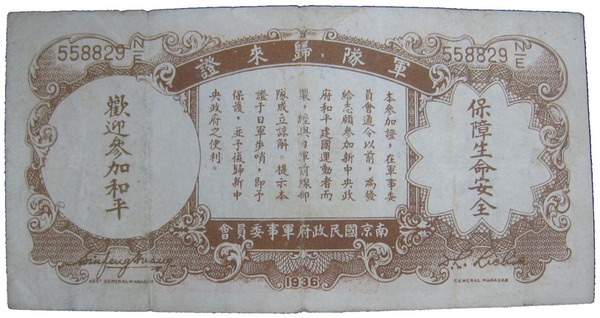 558829 N/E
558829 N/E
軍隊歸來證
保障生命安全
本參加證，在軍事委
員會通令以前，為發
給志願參加新中央政
府和平建國運動者而
製，經與日軍前線部
隊成立諒解。提示本
證于日軍步哨，即予
保護，並予復歸新中
央政府之便利。
歡迎參加和平
南京國民政府軍事委員會
ASST GENERAL MANAGER
GENERAL MANAGER
1936